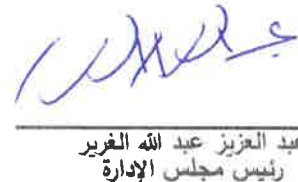 عبد العزيز عبد الله الغرير
رئيس مجلس الإدارة